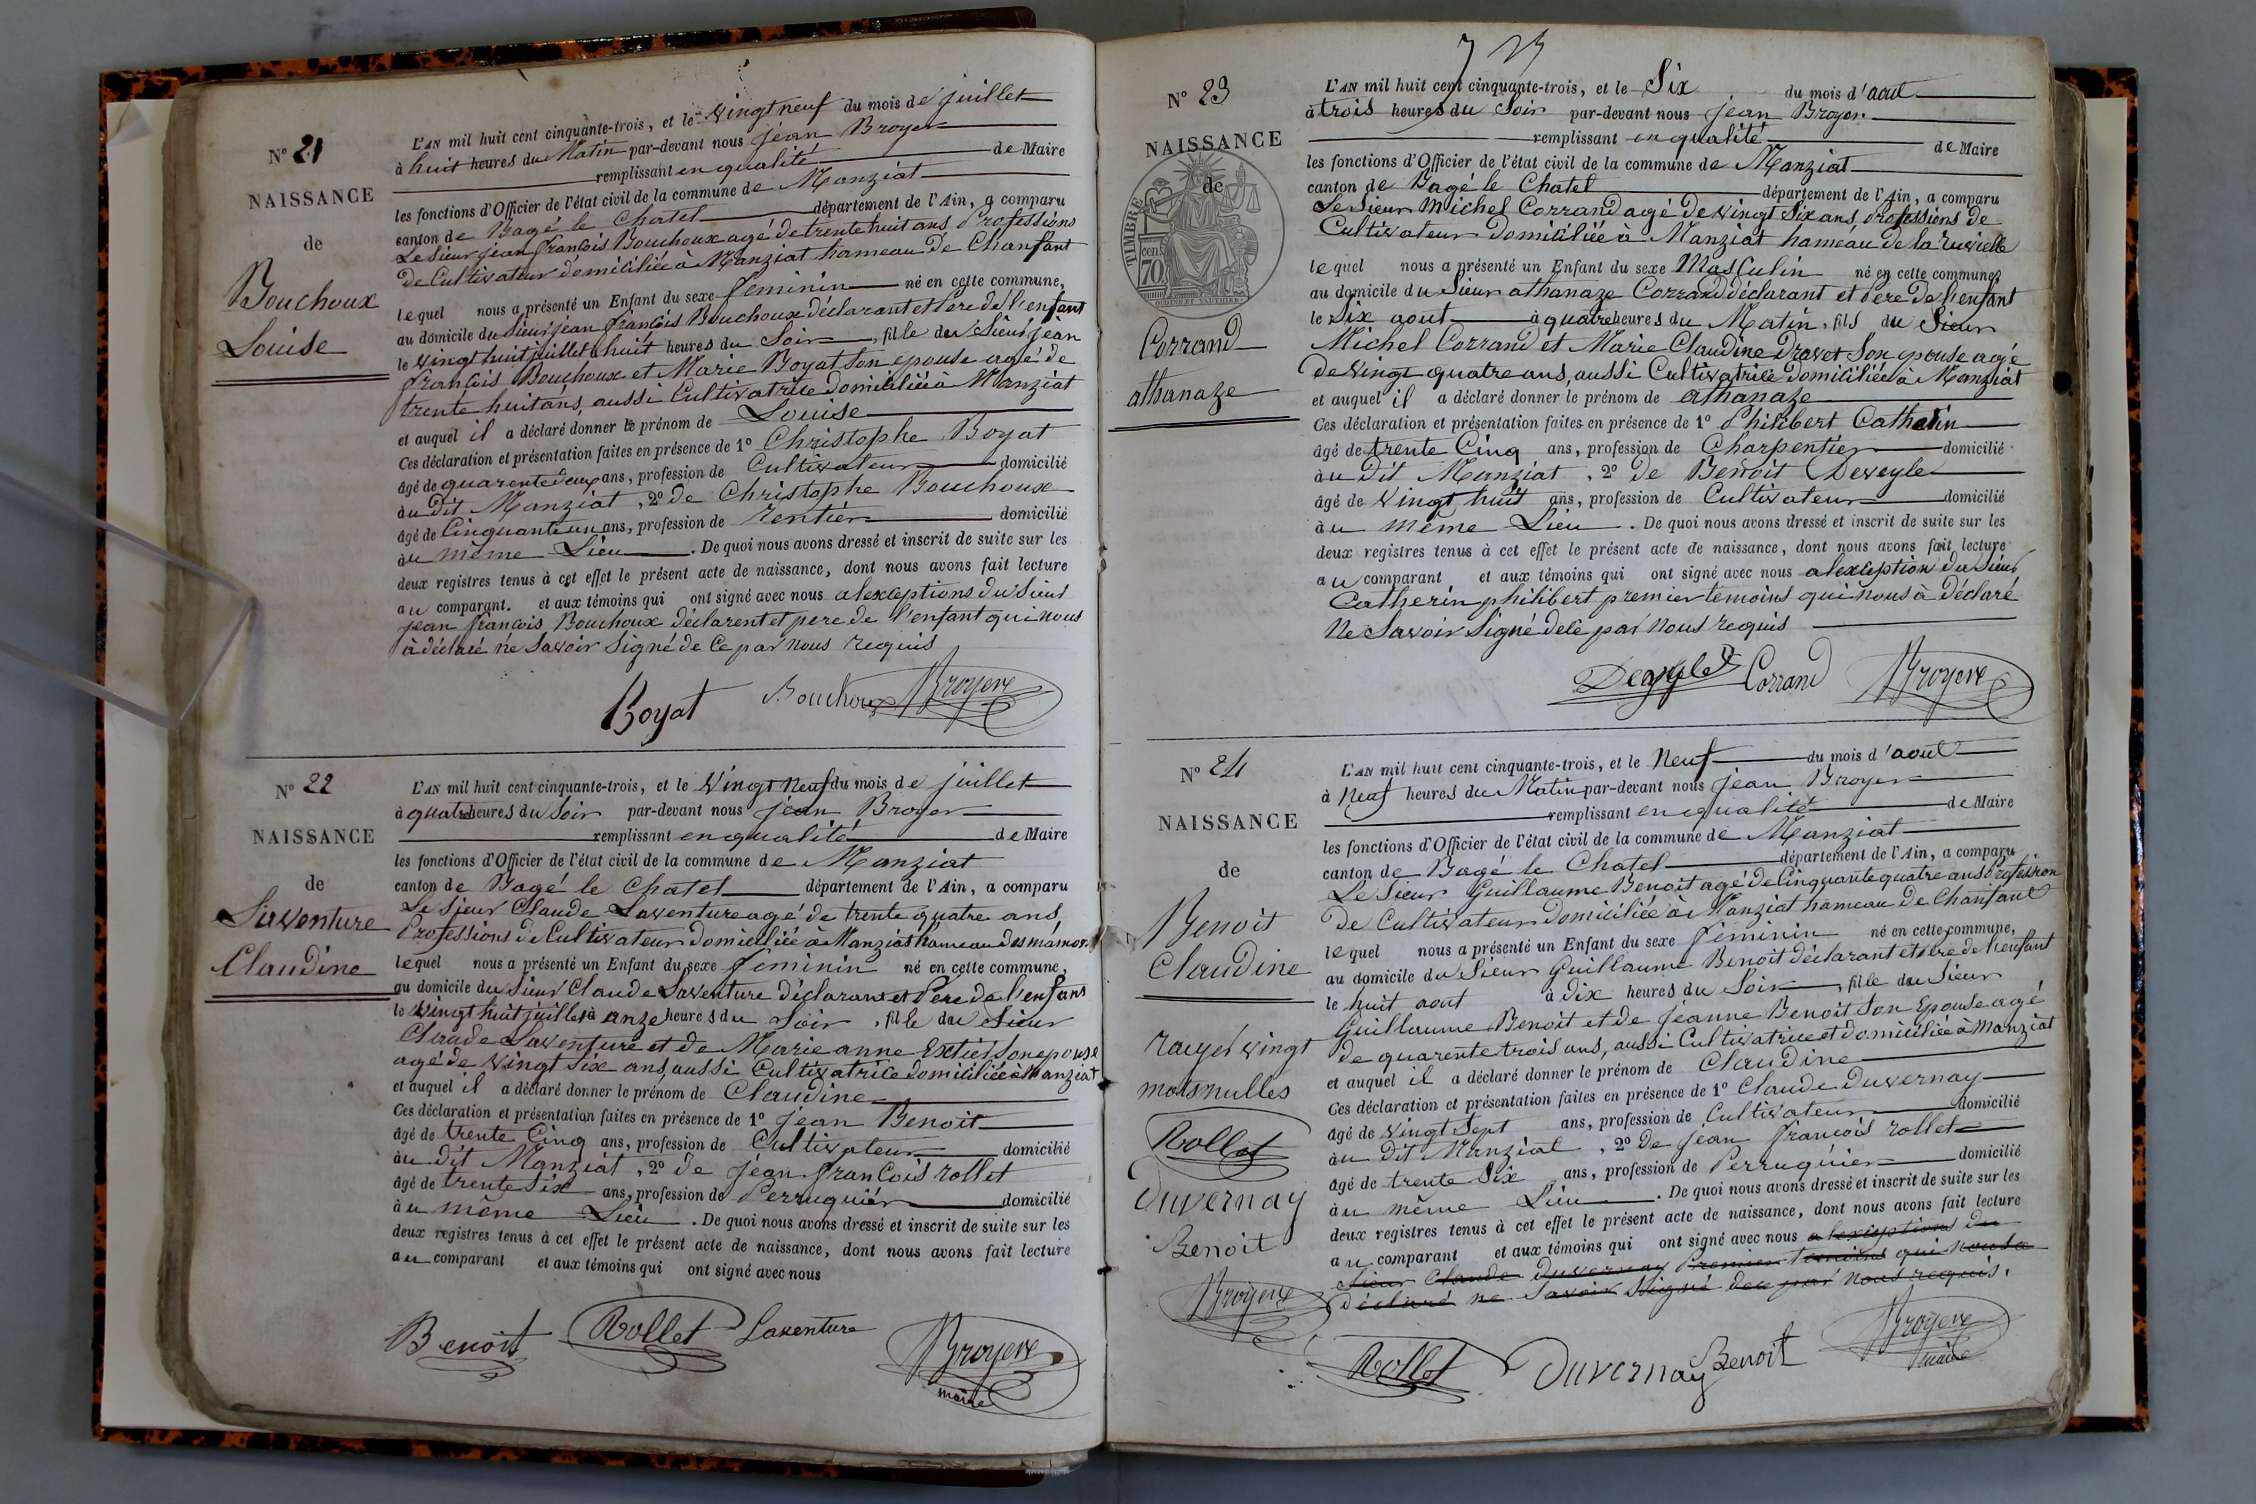 N° 21
NAISSANCE
de
Bouchoux
Louise
L'AN mil huit cent cinquante-trois, et le vingt neuf du mois de juillet
à huit heures du Matin par-devant nous jean Broyer
remplissant en qualité de Maire
les fonctions d'Officier de l'état civil de la commune de Manziat
canton de Bagé le Chatel département de l'Ain, a comparu
Le Sieur jean françois Bouchoux agé de trente huit ans Professions
de Cultivateur domiciliée à Manziat hameau de Chanfant
lequel nous a présenté un Enfant du sexe féminin né en cette commune,
au domicile du Sieur jean françois Bouchoux déclarant et Pere de l'enfant
le vingt huit juillet à huit heures du Soir, fille du Sieur jean
françois Bouchoux et Marie Boyat son epouse agé de
trente huit ans, aussi Cultivatrice domiciliée à Manziat
et auquel il a déclaré donner le prénom de Louise
Ces déclaration et présentation faites en présence de 1° Christophe Boyat
âgé de quarente deux ans, profession de Cultivateur domicilié
au dit Manziat, 2° de Christophe Bouchoux
âgé de Cinquante un ans, profession de rentier domicilié
au même Lieu. De quoi nous avons dressé et inscrit de suite sur les
deux registres tenus à cet effet le présent acte de naissance, dont nous avons fait lecture
au comparant. et aux témoins qui ont signé avec nous alexceptions du Sieur
jean françois Bouchoux déclarent et pere de l'enfant qui nous
à déclaré né Savoir Signé de Ce par nous requis
Boyat Bouchoux Broyer
N° 22
NAISSANCE
de
Laventure
Claudine
L'AN mil huit cent cinquante-trois, et le Vingt Neuf du mois de juillet
à quatre heures du Soir par-devant nous jean Broyer
remplissant en qualité de Maire
les fonctions d'Officier de l'état civil de la commune de Manziat
canton de Bagé le Chatel département de l'Ain, a comparu
Le Sieur Claude Laventure agé de trente quatre ans,
Professions de Cultivateur domiciliée à Manziat hameau des
lequel nous a présenté un Enfant du sexe féminin né en cette commune,
au domicile du Sieur Claude Laventure déclarant et Pere de l'enfant
le vingt huit juillet à onze heures du Soir, fille du Sieur
Claude Laventure et de Marie anne Son epouse
agé de vingt Six ans, aussi Cultivatrice domiciliée à Manziat
et auquel il a déclaré donner le prénom de Claudine
Ces déclaration et présentation faites en présence de 1° jean Benoit
âgé de trente Cinq ans, profession de Cultivateur domicilié
au dit Manziat, 2° de jean françois rollet
âgé de trente Six ans, profession de Perruquier domicilié
au même Lieu. De quoi nous avons dressé et inscrit de suite sur les
deux registres tenus à cet effet le présent acte de naissance, dont nous avons fait lecture
au comparant et aux témoins qui ont signé avec nous
Benoit Rollet Laventure Broyer
maire
N° 23
NAISSANCE
de
TIMBRE
70
Corrand
athanaze
L'AN mil huit cent cinquante-trois, et le Six du mois d'aout
à trois heures du Soir par-devant nous jean Broyer
remplissant en qualité de Maire
les fonctions d'Officier de l'état civil de la commune de Manziat
canton de Bagé le Chatel département de l'Ain, a comparu
Le Sieur Michel Corrand agé de vingt Six ans, Professions de
Cultivateur domiciliée à Manziat hameau de la
lequel nous a présenté un Enfant du sexe Masculin né en cette commune,
au domicile du Sieur athanaze Corrand déclarant et Pere de l'enfant
le Six aout à quatre heures du Matin, fils du Sieur
Michel Corrand et Marie Claudine Dravet Son epouse agé
de vingt quatre ans, aussi Cultivatrice domiciliée à Manziat
et auquel il a déclaré donner le prénom de athanaze
Ces déclaration et présentation faites en présence de 1° Philibert Catherin
âgé de trente Cinq ans, profession de Charpentier domicilié
au dit Manziat, 2° de Benoit Deveyle
âgé de vingt huit ans, profession de Cultivateur domicilié
au même Lieu. De quoi nous avons dressé et inscrit de suite sur les
deux registres tenus à cet effet le présent acte de naissance, dont nous avons fait lecture
au comparant et aux témoins qui ont signé avec nous alexception du Sieur
Catherin philibert premier temoins qui nous à déclaré
Ne Savoir Signé dece par nous requis
Corrand Broyer
N° 24
NAISSANCE
de
Benoit
Claudine
rayer vingt
mots nulles
Rollet
Duvernay
Benoit
Broyer
L'AN mil huit cent cinquante-trois, et le Neuf du mois d'aout
à Neuf heures du Matin par-devant nous jean Broyer
remplissant en qualité de Maire
les fonctions d'Officier de l'état civil de la commune de Manziat
canton de Bagé le Chatel département de l'Ain, a comparu
Le Sieur Guillaume Benoit agé de Cinquante quatre ans Profession
de Cultivateur domiciliée à Manziat hameau de Chanfant
lequel nous a présenté un Enfant du sexe féminin né en cette commune,
au domicile du Sieur Guillaume Benoit déclarant et Pere de l'enfant
le huit aout à dix heures du Soir, fille du Sieur
Guillaume Benoit et de jeanne Benoit Son Epouse agé
de quarente trois ans, aussi Cultivatrice et domiciliée à Manziat
et auquel il a déclaré donner le prénom de Claudine
Ces déclaration et présentation faites en présence de 1° Claude Duvernay
âgé de vingt Sept ans, profession de Cultivateur domicilié
au dit Manziat, 2° de jean françois rollet
âgé de trente Six ans, profession de Perruquier domicilié
au même Lieu. De quoi nous avons dressé et inscrit de suite sur les
deux registres tenus à cet effet le présent acte de naissance, dont nous avons fait lecture
au comparant et aux témoins qui ont signé avec nous alexceptions du
Sieur Claude Duvernay Premier temoins qui nous a
déclaré ne Savoir Signé dece par nous requis.
Rollet Duvernay Benoit Broyer
maire